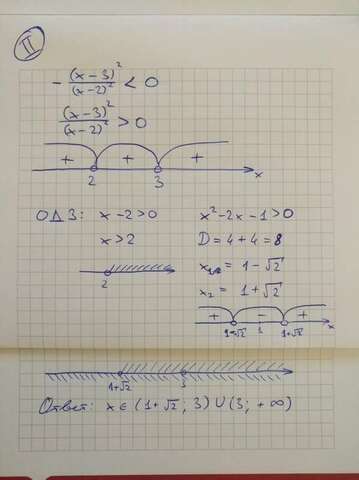 II
- (x-3)²/(x-2)² < 0
(x-3)²/(x-2)² > 0
+ + +
2 3 x
ОДЗ: x-2>0 x²-2x-1>0
x>2 D=4+4=8
2
x₁ = 1-√2
x₂ = 1+√2
+ - +
1-√2 1 1+√2 x
1+√2 3
Ответ: x∈(1+√2; 3)∪(3; +∞)